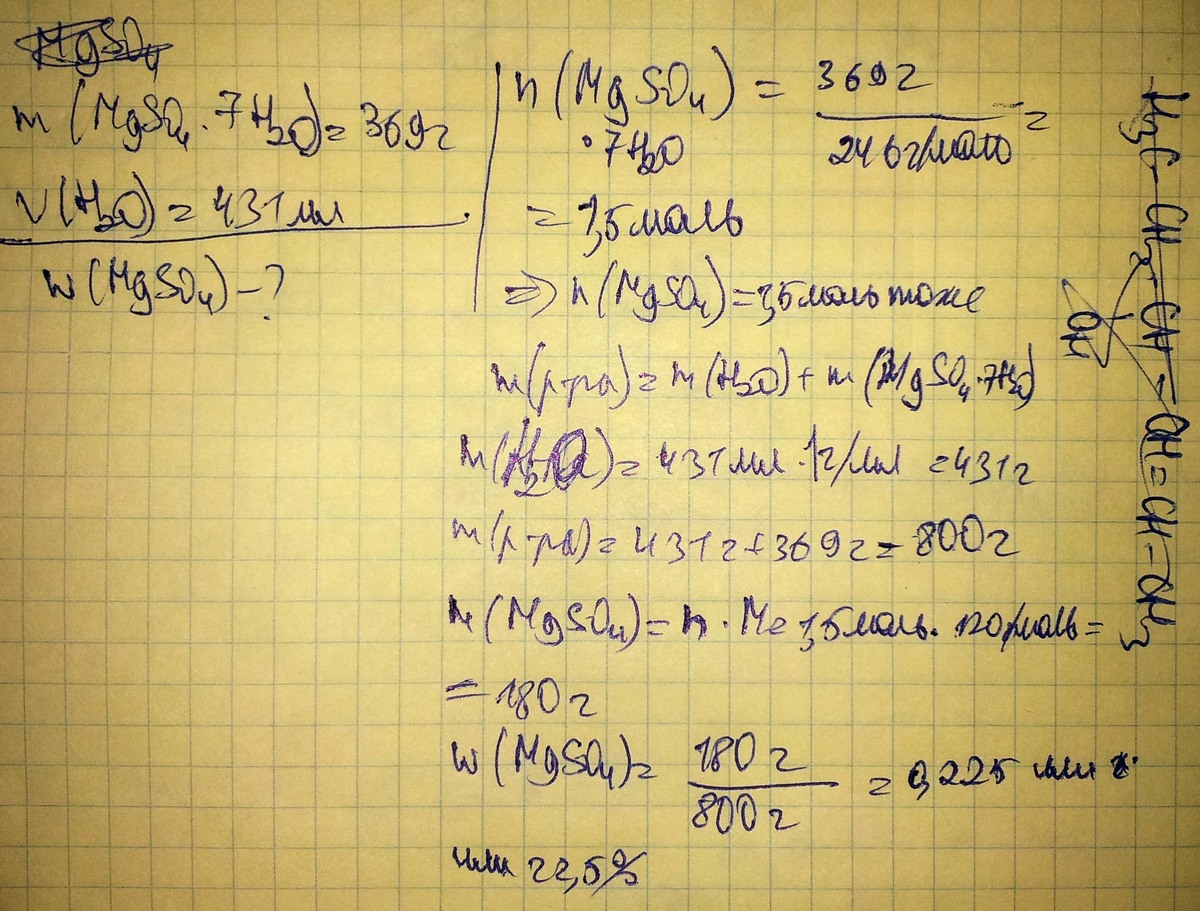 MgSO₄
m (MgSO₄ · 7H₂O) = 369 г
V (H₂O) = 431 мл
w (MgSO₄) - ?
n (MgSO₄ · 7H₂O) = 369 г / 246 г/моль =
= 1,5 моль
=> n (MgSO₄) = 1,5 моль тоже
m (р-ра) = m (H₂O) + m (MgSO₄ · 7H₂O)
m (H₂O) = 431 мл · 1 г/мл = 431 г
m (р-ра) = 431 г + 369 г = 800 г
m (MgSO₄) = n · M = 1,5 моль · 120 г/моль =
= 180 г
w (MgSO₄) = 180 г / 800 г = 0,225 или
или 22,5%
H₃C - CH₂ - CH - CH = CH - CH₃